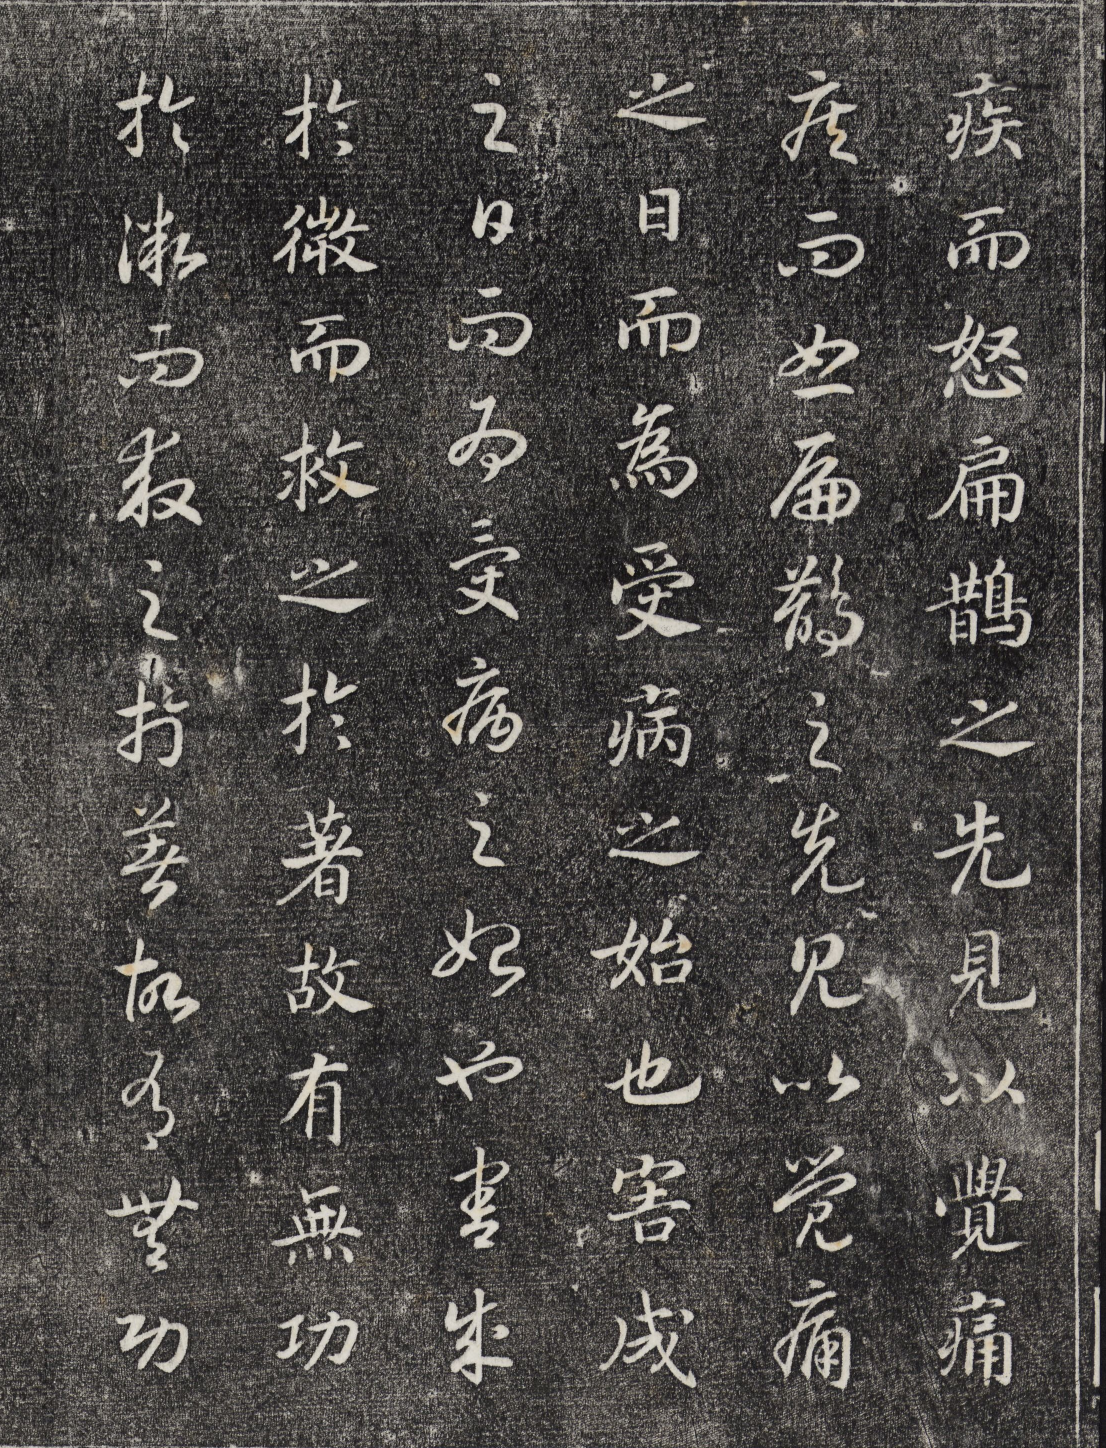 疾而怒扁鵲之先見以覺痛
疾而怒扁鵲之先見以覺痛
之日而為受病之始也害成
之日而為受病之始也害成
於微而救之於著故有無功
於微而救之於著故有無功